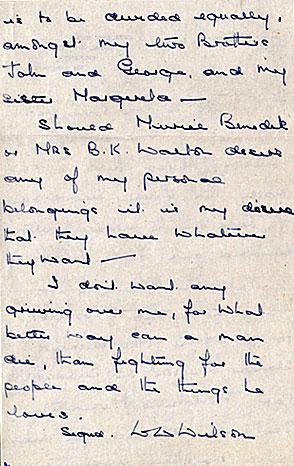 is to be divided equally,
amongst my two Brothers
John and George, and my
sister Margurela —
Should Muriel Benedek
or Mrs B.K. Walton desire
any of my personal
belongings it is my desire
that they have whatever
they want —
I don't want any
grieving over me, for what
better way can a man
die, than fighting for the
people and the things he
loves.
Signed. W W Wilson